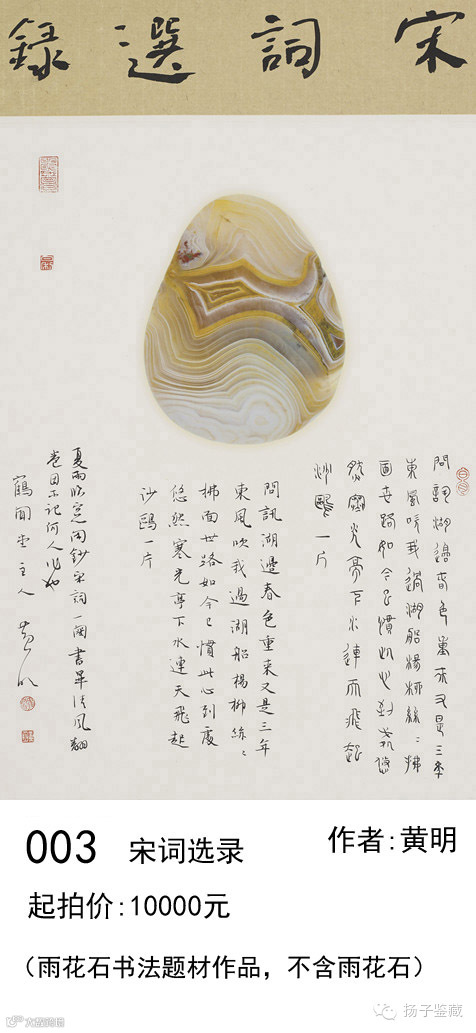 宋詞選錄
問訊湖邊春色重來又是三年
東風吹我過湖船楊柳絲〻拂
面世路如今已慣此心到處悠
然寒光亭下水連天飛起
沙鷗一片
問訊湖邊春色重來又是三年
東風吹我過湖船楊柳絲〻
拂面世路如今已慣此心到處
悠然寒光亭下水連天飛起
沙鷗一片
夏雨臨窓閑鈔宋詞一闋書畢清風翻
卷因不記何人作也
鶴聞堂主人 黄明
003 宋词选录 作者:黄明
起拍价:10000元
（雨花石书法题材作品，不含雨花石）
扬子鉴藏